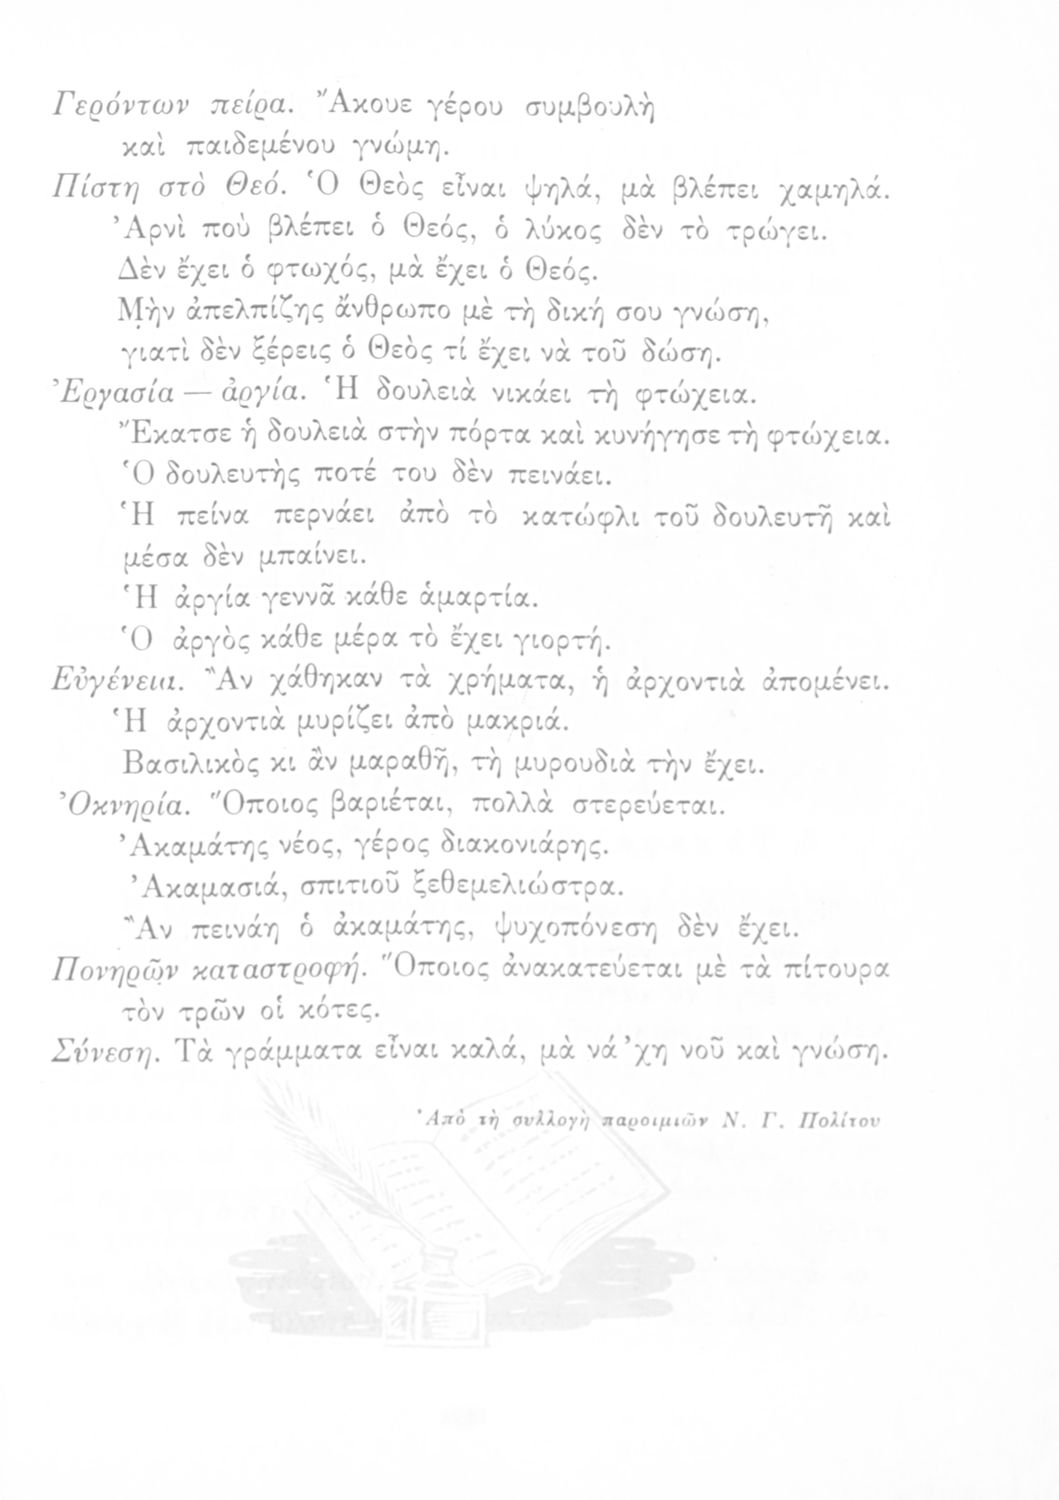 Γερόντων πείρα. Ἄκουε γέρου συμβουλὴ
καὶ παιδεμένου γνώμη.
Πίστη στὸ Θεό. Ὁ Θεὸς εἶναι ψηλά, μὰ βλέπει χαμηλά.
Ἀρνὶ ποὺ βλέπει ὁ Θεός, ὁ λύκος δὲν τὸ τρώγει.
Δὲν ἔχει ὁ φτωχός, μὰ ἔχει ὁ Θεός.
Μὴν ἀπελπίζης ἄνθρωπο μὲ τὴ δική σου γνώση,
γιατὶ δὲν ξέρεις ὁ Θεὸς τί ἔχει νὰ τοῦ δώση.
Ἐργασία — ἀργία. Ἡ δουλειὰ νικάει τὴ φτώχεια.
Ἔκατσε ἡ δουλειὰ στὴν πόρτα καὶ κυνήγησε τὴ φτώχεια.
Ὁ δουλευτὴς ποτέ του δὲν πεινάει.
Ἡ πείνα περνάει ἀπὸ τὸ κατώφλι τοῦ δουλευτῆ καὶ
μέσα δὲν μπαίνει.
Ἡ ἀργία γεννᾶ κάθε ἁμαρτία.
Ὁ ἀργὸς κάθε μέρα τὸ ἔχει γιορτή.
Εὐγένεια. Ἂν χάθηκαν τὰ χρήματα, ἡ ἀρχοντιὰ ἀπομένει.
Ἡ ἀρχοντιὰ μυρίζει ἀπὸ μακριά.
Βασιλικὸς κι ἂν μαραθῆ, τὴ μυρουδιὰ τὴν ἔχει.
Ὀκνηρία. Ὅποιος βαριέται, πολλὰ στερεύεται.
Ἀκαμάτης νέος, γέρος διακονιάρης.
Ἀκαμασιά, σπιτιοῦ ξεθεμελιώστρα.
Ἂν πεινάη ὁ ἀκαμάτης, ψυχοπόνεση δὲν ἔχει.
Πονηρῶν καταστροφή. Ὅποιος ἀνακατεύεται μὲ τὰ πίτουρα
τὸν τρῶν οἱ κότες.
Σύνεση. Τὰ γράμματα εἶναι καλά, μὰ νά 'χη νοῦ καὶ γνώση.
Ἀπὸ τὴ συλλογὴ παροιμιῶν Ν. Γ. Πολίτου